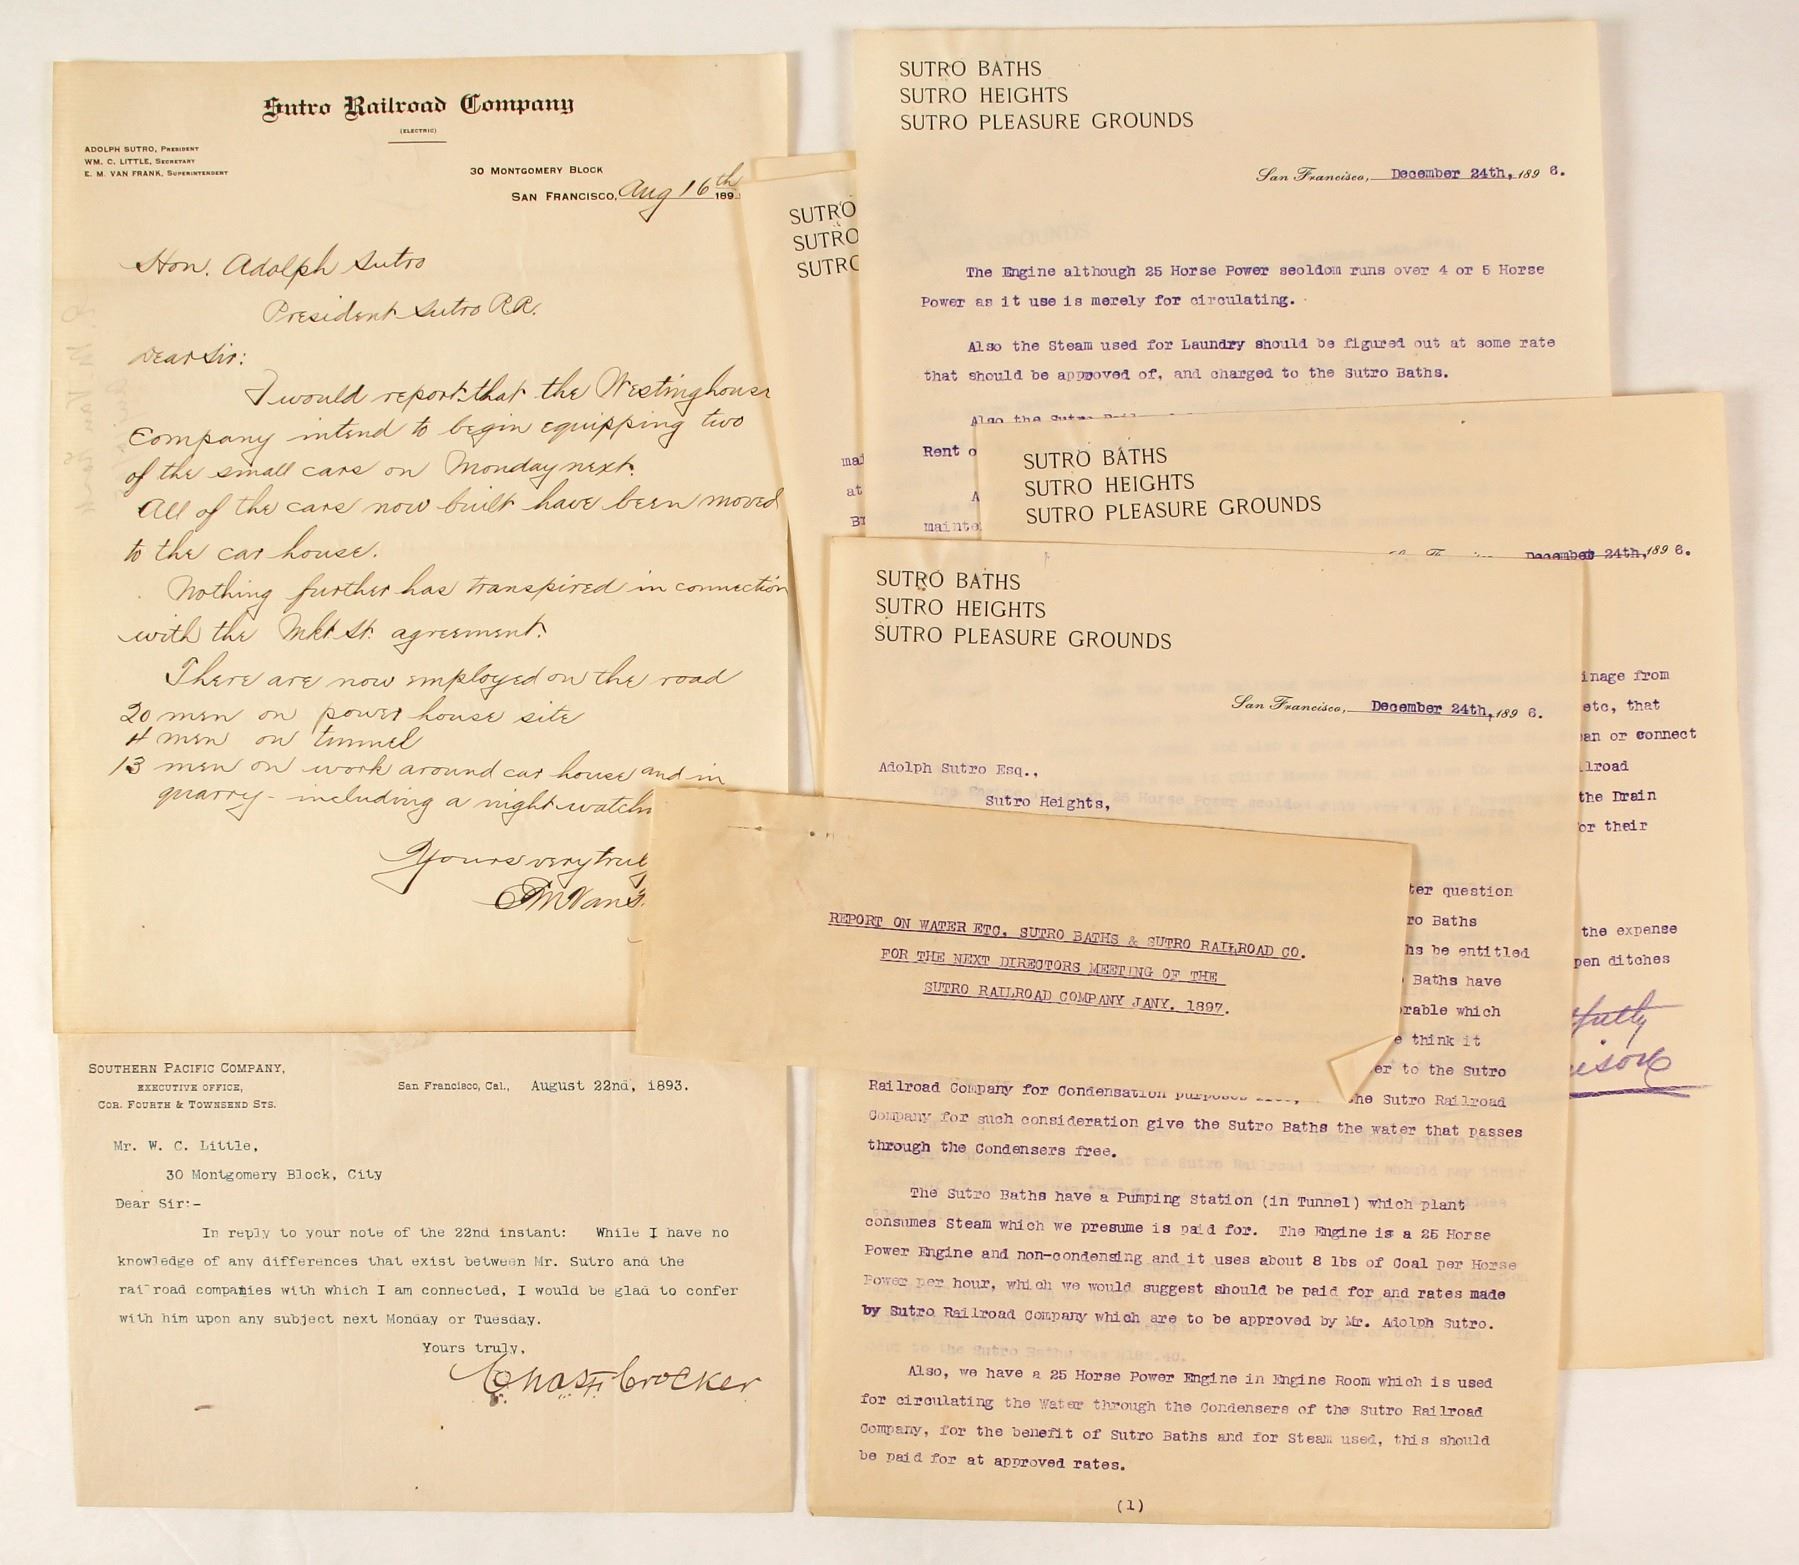 Sutro Railroad Company
(ELECTRIC)
ADOLPH SUTRO, PRESIDENT
WM. C. LITTLE, SECRETARY
E. M. VAN FRANK, SUPERINTENDENT
30 MONTGOMERY BLOCK
SAN FRANCISCO, Aug 16th 189
Hon. Adolph Sutro
President Sutro R.R.
Dear Sir:
I would report that the Westinghouse
Company intend to begin equipping two
of the small cars on Monday next.
All of the cars now built have been moved
to the car house.
Nothing further has transpired in connection
with the Mkt St. agreement.
There are now employed on the road
20 men on power house site
4 men on tunnel
13 men on work around car house and in
quarry - including a night watchm
Yours very truly
EM Van F
SOUTHERN PACIFIC COMPANY,
EXECUTIVE OFFICE,
COR. FOURTH & TOWNSEND STS.
San Francisco, Cal., August 22nd, 1893.
Mr. W. C. Little,
30 Montgomery Block, City
Dear Sir:-
In reply to your note of the 22nd instant: While I have no
knowledge of any differences that exist between Mr. Sutro and the
railroad companies with which I am connected, I would be glad to confer
with him upon any subject next Monday or Tuesday.
Yours truly,
Chas F Crocker
SUTRO
SUTRO
SUTRO
mai
at
BY
SUTRO BATHS
SUTRO HEIGHTS
SUTRO PLEASURE GROUNDS
San Francisco, December 24th, 1896.
The Engine although 25 Horse Power seoldom runs over 4 or 5 Horse
Power as it use is merely for circulating.
Also the Steam used for Laundry should be figured out at some rate
that should be approved of, and charged to the Sutro Baths.
Also the Sutro Rail
Rent o
A
mainte
SUTRO BATHS
SUTRO HEIGHTS
SUTRO PLEASURE GROUNDS
December 24th, 1896.
inage from
etc, that
an or connect
lroad
the Drain
or their
the expense
pen ditches
tfully
ison
SUTRO BATHS
SUTRO HEIGHTS
SUTRO PLEASURE GROUNDS
San Francisco, December 24th, 1896.
Adolph Sutro Esq.,
Sutro Heights,
ter question
ro Baths
hs be entitled
Baths have
rable which
e think it
er to the Sutro
Railroad Company for Condensation purposes free, he Sutro Railroad
Company for such consideration give the Sutro Baths the water that passes
through the Condensers free.
The Sutro Baths have a Pumping Station (in Tunnel) which plant
consumes Steam which we presume is paid for. The Engine is a 25 Horse
Power Engine and non-condensing and it uses about 8 lbs of Coal per Horse
Power per hour, which we would suggest should be paid for and rates made
by Sutro Railroad Company which are to be approved by Mr. Adolph Sutro.
Also, we have a 25 Horse Power Engine in Engine Room which is used
for circulating the Water through the Condensers of the Sutro Railroad
Company, for the benefit of Sutro Baths and for Steam used, this should
be paid for at approved rates.
(1)
REPORT ON WATER ETC. SUTRO BATHS & SUTRO RAILROAD CO.
FOR THE NEXT DIRECTORS MEETING OF THE
SUTRO RAILROAD COMPANY JANY. 1897.